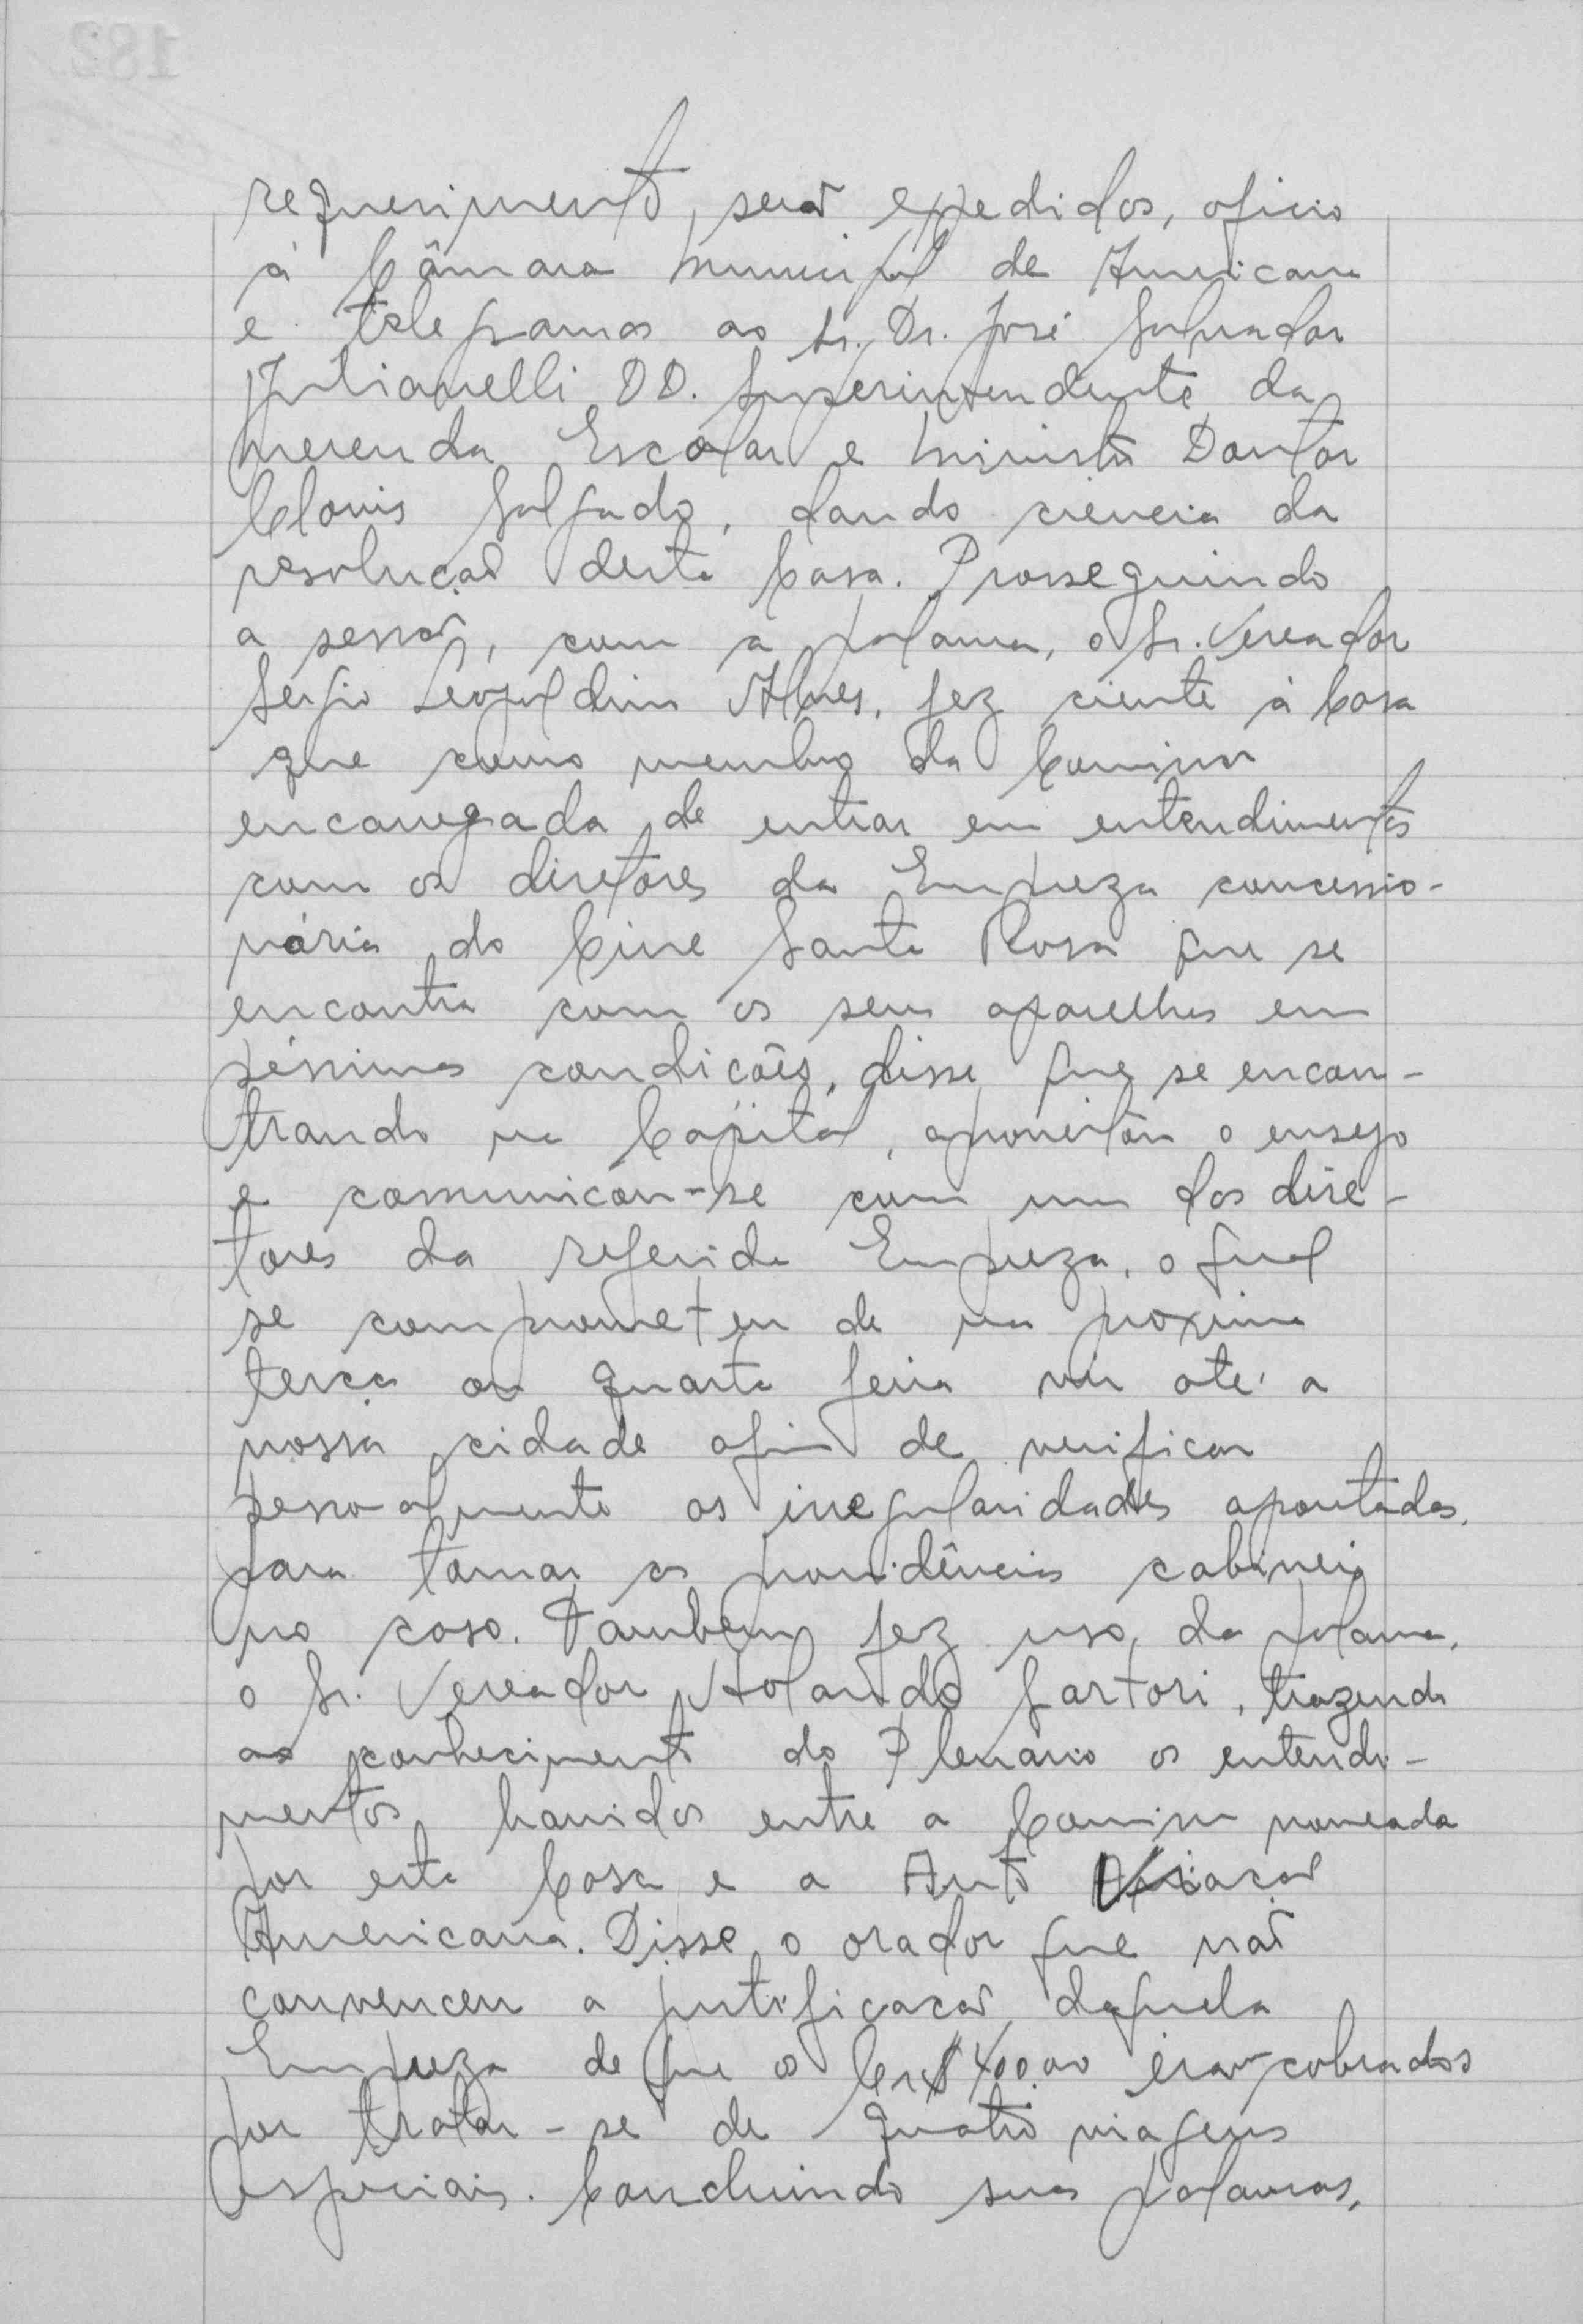 requerimento, será expedidos, oficio
á Câmara Municipal de Americana
e telegramas ao Sr. Dr. José Salvador
Julianelli DD. Superintendente da
merenda Escolar e Ministro Doutor
Clovis Salgado, dando ciencia da
resolução desta Casa. Prosseguindo
a sessão, com a palavra, o Sr. Vereador
Sergio Leopoldino Alves, fez ciente á Casa
que como membro da Comissão
encarregada de entrar em entendimentos
com os diretores da Empreza concessio-
nária do Cine Santa Rosa que se
encontra com os seus aparelhos em
péssimas condições, disse que se encon-
trando na Capital, aproveitou o ensejo
e comunicou-se com um dos dire-
tores da referida Empreza, o qual
se comprometeu de na proxima
terça ou quarta feira vir até a
nossa cidade afim de verificar
pessoalmente as irregularidades apontadas,
para tomar as providências cabiveis
no caso. Tambem fez uso da palavra,
o Sr. Vereador Holando Sartori, trazendo
ao conhecimento do Plenário os entendi-
mentos havidos entre a Comissão nomeada
por esta Casa e a Auto Viação
Americana. Disse o orador que não
convenceu a justificação daquela
Empreza de que os Cr$ 400,00 eram cobrados
por tratar-se de quatro viagens
especiais. Concluindo suas palavras,
182